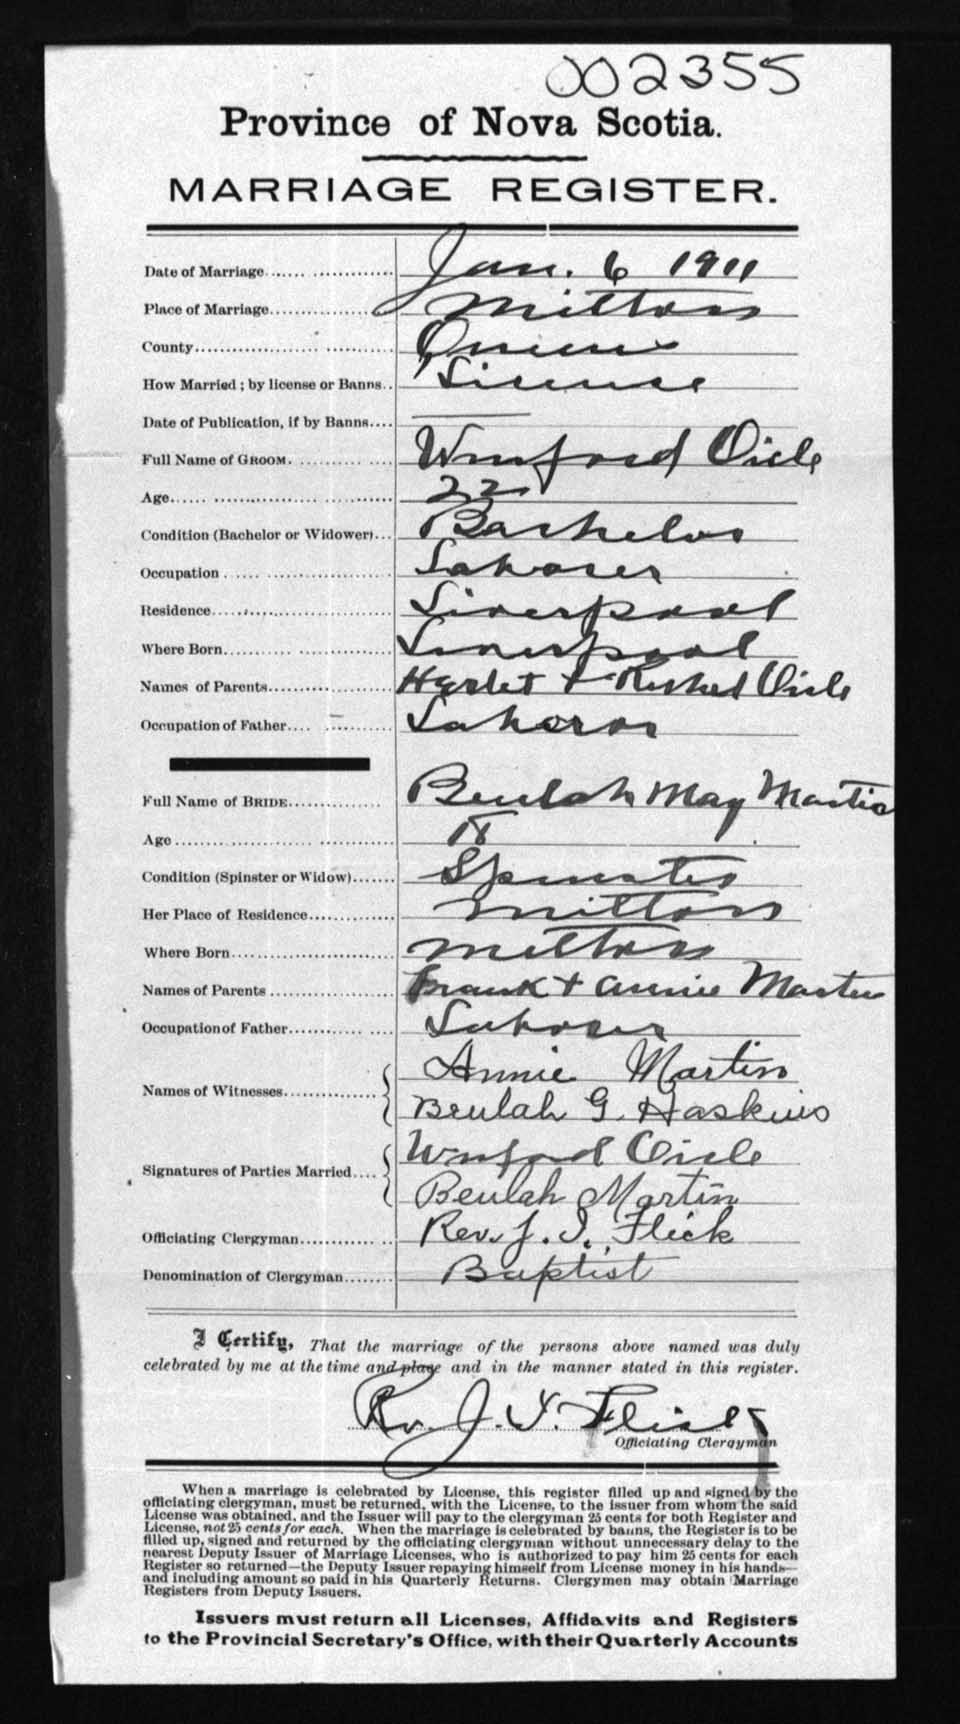 002355
Province of Nova Scotia.
MARRIAGE REGISTER.
Date of Marriage Jan. 6 1911
Place of Marriage Milton
County Queens
How Married ; by license or Banns License
Date of Publication, if by Banns
Full Name of GROOM. Winford Oicle
Age 22
Condition (Bachelor or Widower) Bachelor
Occupation Laborer
Residence Liverpool
Where Born Liverpool
Names of Parents + Oicle
Occupation of Father Laborer
Full Name of BRIDE Beulah May Martin
Age 18
Condition (Spinster or Widow) Spinster
Her Place of Residence Milton
Where Born Milton
Names of Parents Frank + Annie Martin
Occupation of Father Laborer
Names of Witnesses Annie Martin
Beulah G. Haskins
Signatures of Parties Married Winford Oicle
Beulah Martin
Officiating Clergyman Rev. J. I. Flick
Denomination of Clergyman Baptist
I Certify, That the marriage of the persons above named was duly
celebrated by me at the time and place and in the manner stated in this register.
Rev. J. I. Flick
Officiating Clergyman
When a marriage is celebrated by License, this register filled up and signed by the
officiating clergyman, must be returned, with the License, to the issuer from whom the said
License was obtained, and the Issuer will pay to the clergyman 25 cents for both Register and
License, not 25 cents for each. When the marriage is celebrated by banns, the Register is to be
filled up, signed and returned by the officiating clergyman without unnecessary delay to the
nearest Deputy Issuer of Marriage Licenses, who is authorized to pay him 25 cents for each
Register so returned—the Deputy Issuer repaying himself from License money in his hands—
and including amount so paid in his Quarterly Returns. Clergymen may obtain Marriage
Registers from Deputy Issuers.
Issuers must return all Licenses, Affidavits and Registers
to the Provincial Secretary's Office, with their Quarterly Accounts